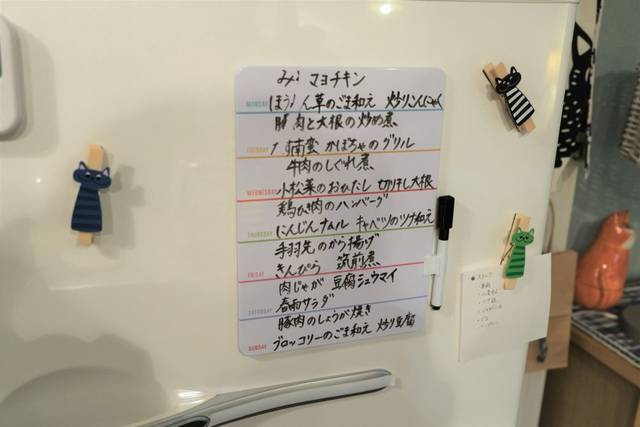 みそマヨチキン
MONDAY ほうれん草のごま和え 炒りこんにゃく
豚肉と大根の炒め煮
TUESDAY 南蛮 かぼちゃのグリル
牛肉のしぐれ煮
WEDNESDAY 小松菜のおひたし 切り干し大根
鶏ひき肉のハンバーグ
THURSDAY にんじんナムル キャベツのツナ和え
手羽先のから揚げ
FRIDAY きんぴら 筑前煮
肉じゃが 豆腐シュウマイ
SATURDAY 春雨サラダ
豚肉のしょうが焼き
SUNDAY ブロッコリーのごま和え 炒り豆腐